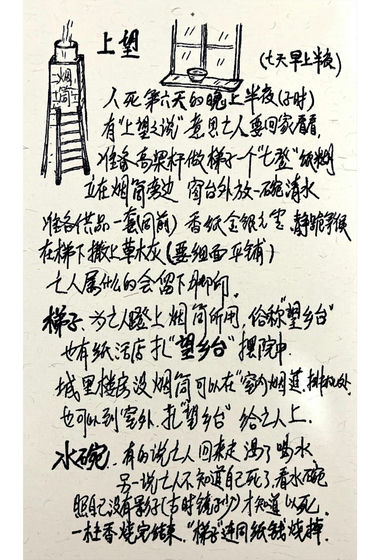 上望
(七天早上半夜)
烟筒
人死第六天的晚上半夜(子时)
有"上望之说"意思亡人要回家看看.
准备高粱杆做梯子一个"七登"纸糊
立在烟筒旁边 窗台外放一碗清水
准备供品一套(同前) 香纸金银元宝.静跪等候
在梯下撒上草木灰(要细面平铺)
亡人属什么的会留下脚印.
梯子:为亡人登上烟筒所用.俗称"望乡台"
也有纸活店扎"望乡台"摆院中.
城里楼房没烟筒可以在"室内烟道.排
也可以到室外.扎"望乡台"给亡人上.
水碗.有的说亡人回来走渴了喝水.
另一说亡人不知道自己死了.看水碗
照自己没有影子(古时镜子少)才知道以死.
一柱香烧完结束."梯子"连同纸钱烧掉.